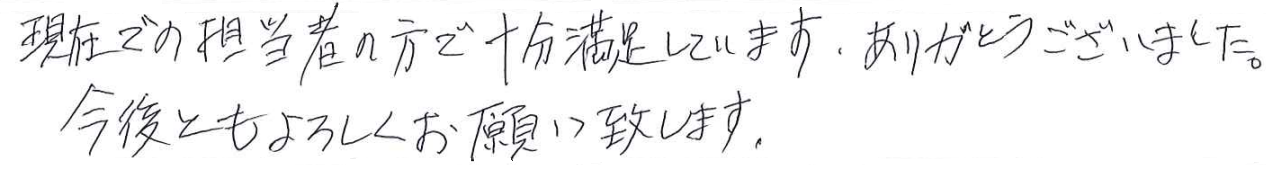 現在での担当者の方で十分満足しています。ありがとうございました。
今後ともよろしくお願い致します。